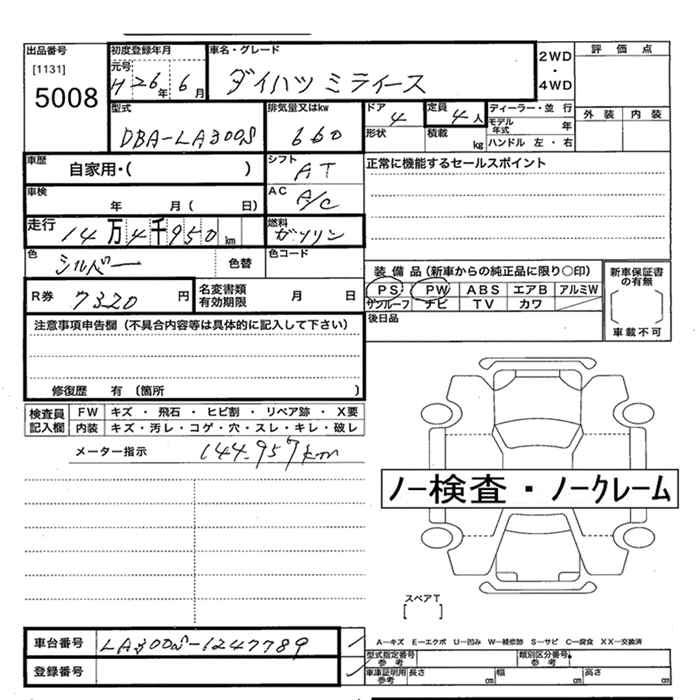 出品番号 初度登録年月 車名・グレード 2WD ・ 4WD 評価点
[1131] 元号
5008 H 26年 6月 ダイハツ ミライース
型式 排気量又はkw ドア 定員 ディーラー・並 行 外装 内装
DBA-LA300S 660 4 4人 モデル年式 年
形状 積載 kg ハンドル 左・右
車歴 自家用・( ) シフト AT 正常に機能するセールスポイント
車検 年 月( 日) AC A/C
走行 14万4千950km 燃料 ガソリン
色 シルバー 色替 色コード
装備品(新車からの純正品に限り○印) 新車保証書の有無
R券 7320円 名変書類有効期限 月 日 PS PW ABS エアB アルミW
サンルーフ ナビ TV カワ
注意事項申告欄(不具合内容等は具体的に記入して下さい) 後日品 車載不可
修復歴 有(箇所 )
検査員記入欄 FW キズ・飛石・ヒビ割・リペア跡・X要
内装 キズ・汚レ・コゲ・穴・スレ・キレ・破レ
メーター指示 144.957km
ノー検査・ノークレーム
スペアT
[ ]
車台番号 LA300S-1247789 A―キズ E―エクボ U―凹み W―補修跡 S―サビ C―腐食 XX―交換済
型式指定番号 参考 類別区分番号 参考
登録番号 車庫証明用参考 長さ cm 幅 cm 高さ cm